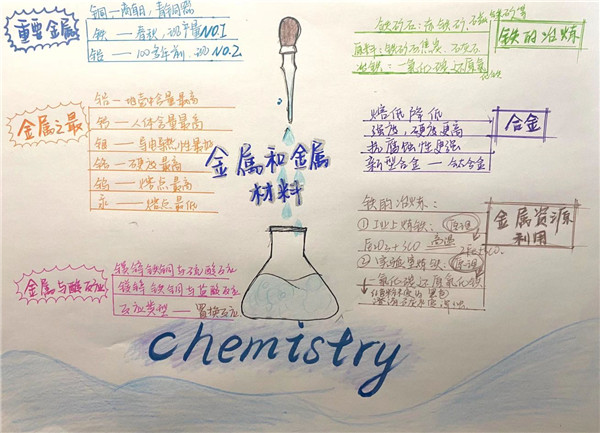 重要金属
铜——商朝,青铜器
铁——春秋,现产量NO.1
铝——100多年前,现NO.2
金属之最
铝——地壳中含量最高
钙——人体含量最高
银——导电导热性最好
铬——硬度最高
钨——熔点最高
汞——熔点最低
金属与酸反应
镁锌铁铜与硫酸反应
镁锌铁铜与盐酸反应
反应类型——置换反应
金属和金属
材料
chemistry
铁的冶炼
铁矿石:赤铁矿、磁铁矿等
原料:铁矿石 焦炭 石灰石
炼铁:一氧化碳还原氧化铁
合金
熔点降低
强度,硬度更高
抗腐蚀性更强
新型合金——钛合金
金属资源
利用
铁的冶炼:
①工业上炼铁:原理
高温
②实验室炼铁:原理
一氧化碳还原氧化铁
红色粉末变为黑色